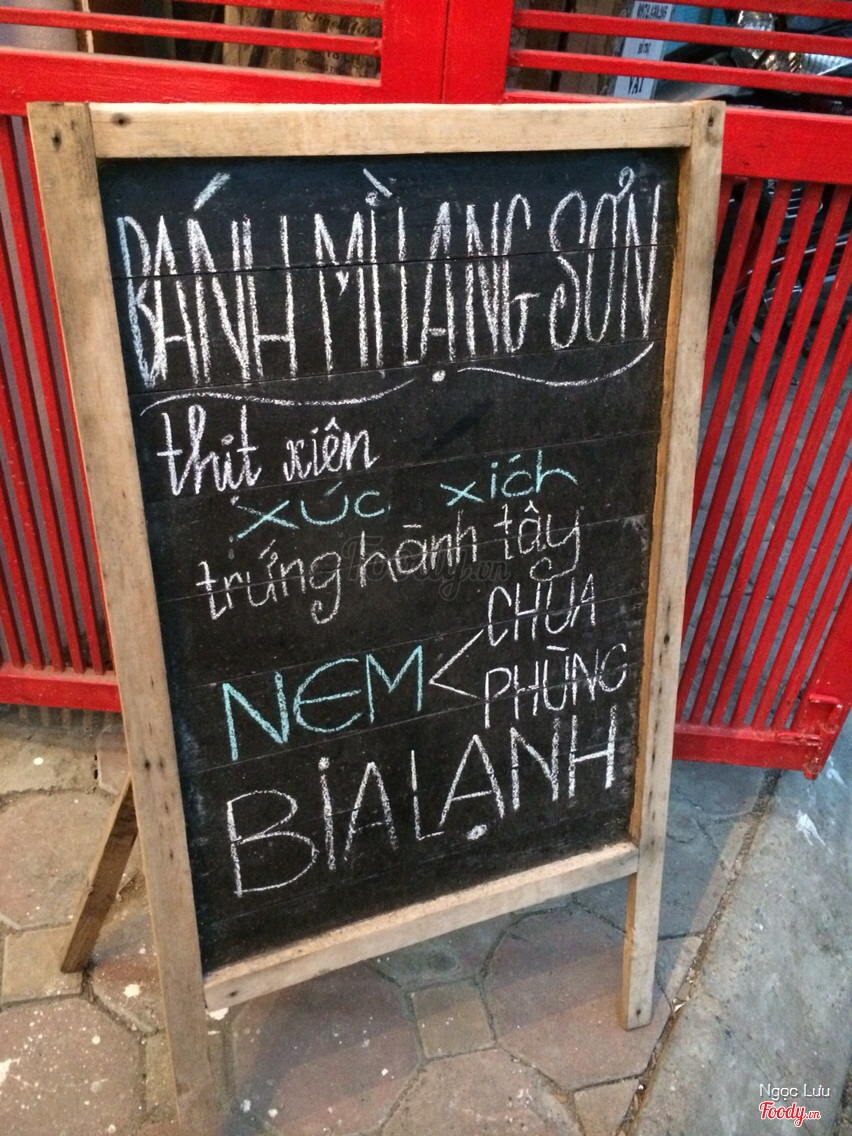 BÁNH MÌ LẠNG SƠN
thịt xiên
xúc xích
trứng hành tây
NEM < CHUA
PHÙNG
BIA LẠNH
Foody.vn
Ngọc Lưu
Foody.vn